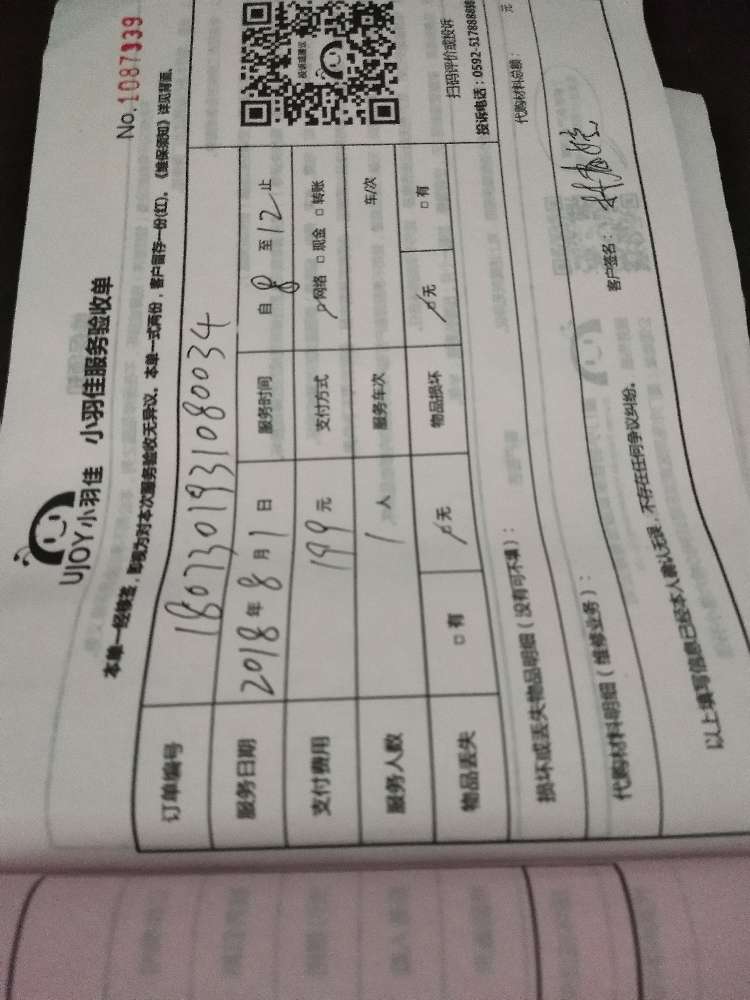 No.1087939
UJOY小羽佳 小羽佳服务验收单
本单一经修签，即视为对本次服务验收无异议。本单一式两份，客户留存一份(红)。《维保须知》详见背面。
订单编号 1807301931080034
服务日期 2018年8月1日 服务时间 自8至12止
支付费用 199元 支付方式 网络 □现金 □转账
服务人数 1人 服务车次 车/次
物品丢失 □有 无 物品损坏 无 □有
投诉或建议
扫码评价或投诉
投诉电话：0592-5178888转
损坏或丢失物品明细（没有可不填）：
代购材料明细（维修业务）： 代购材料总额： 元
以上填写信息已经本人确认无误，不存在任何争议纠纷。 客户签名：